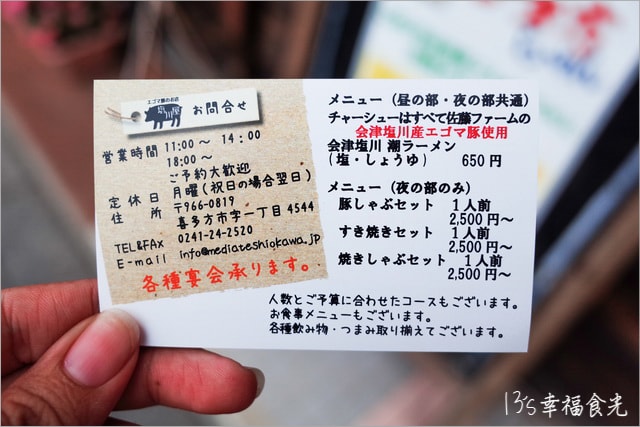 エゴマ豚のお店
塩川屋
お問合せ
営業時間 11:00～14:00
18:00～
ご予約大歓迎
定休日 月曜(祝日の場合翌日)
住所 〒966-0819
喜多方市字一丁目4544
TEL&FAX 0241-24-2520
E-mail info@mediateshiokawa.jp
各種宴会承ります。
メニュー(昼の部・夜の部共通)
チャーシューはすべて佐藤ファームの
会津塩川産エゴマ豚使用
会津塩川 潮ラーメン
(塩・しょうゆ) 650円
メニュー(夜の部のみ)
豚しゃぶセット 1人前
2,500円～
すき焼きセット 1人前
2,500円～
焼きしゃぶセット 1人前
2,500円～
人数とご予算に合わせたコースもございます。
お食事メニューもございます。
各種飲み物・つまみ取り揃えてございます。
13's幸福食光